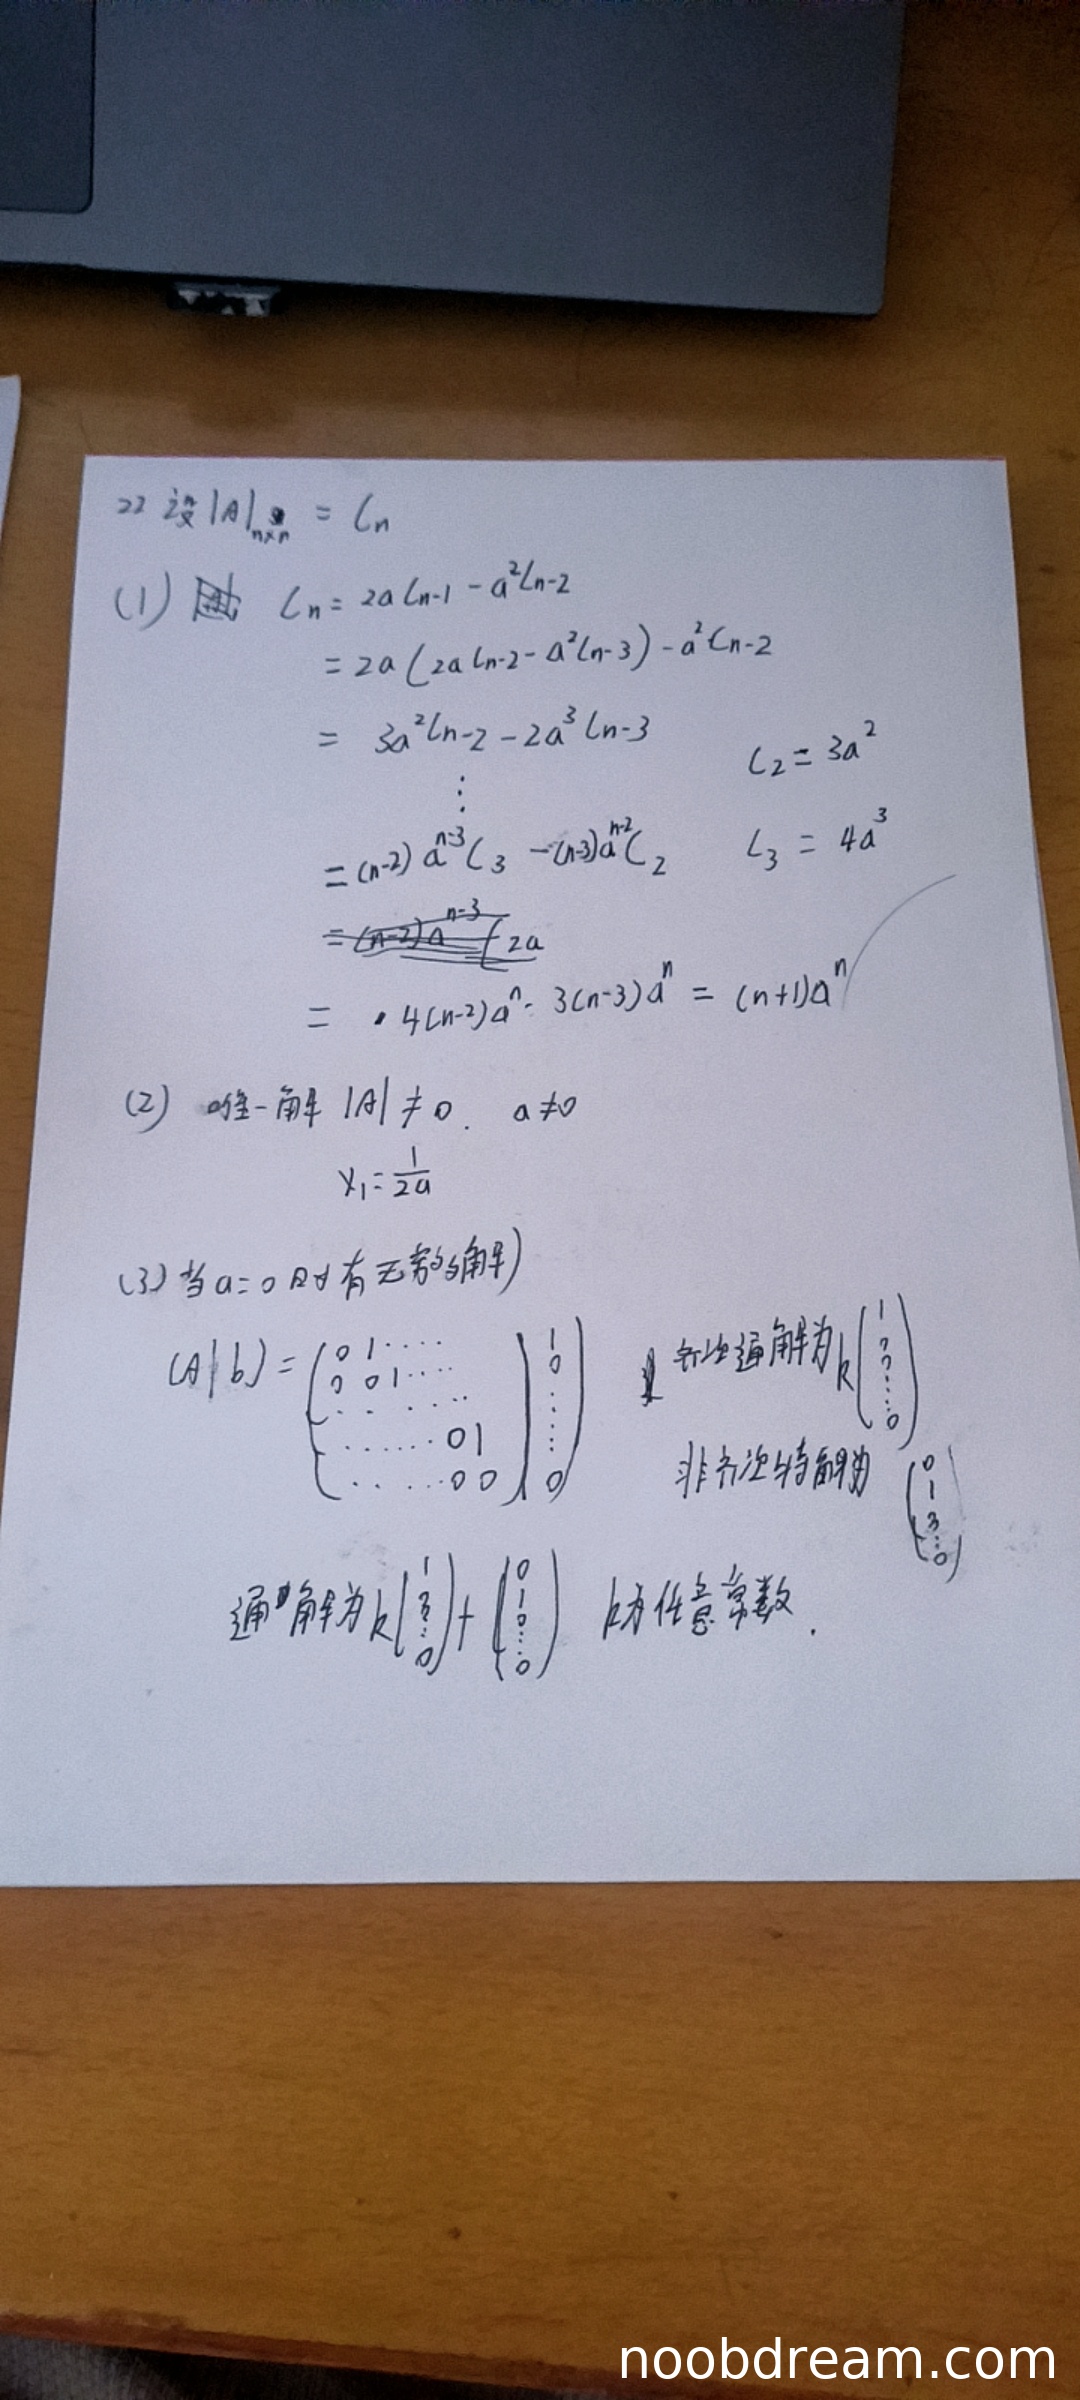 22 设 |A|n×n = Cn
(1) Cn = 2a Cn-1 - a²Cn-2
= 2a (2a Cn-2 - a²Cn-3) - a²Cn-2
= 3a²Cn-2 - 2a³ Cn-3
⋮
C2 = 3a²
= (n-2) aⁿ⁻³ C3 - (n-3)aⁿ⁻² C2
C3 = 4a³
= (n-2) aⁿ⁻³ (2a
= 4(n-2)aⁿ - 3(n-3)aⁿ = (n+1)aⁿ
(2) 唯一解 |A| ≠ 0. a≠0
x1 = 1/2a
(3) 当 a=0 时有无穷多解)
(A|b) =
0 1 ····· 1
0 0 1 ···· 0
· · ····· ·
······ 0 1 ⋮
····· 0 0 0
齐次通解为 k (1 ⋮ 0)
非齐次特解为 (0 1 ⋮ 0)
通解为 k (1 ⋮ 0) + (0 1 0 ⋮ 0) k为任意常数.
noobdream.com